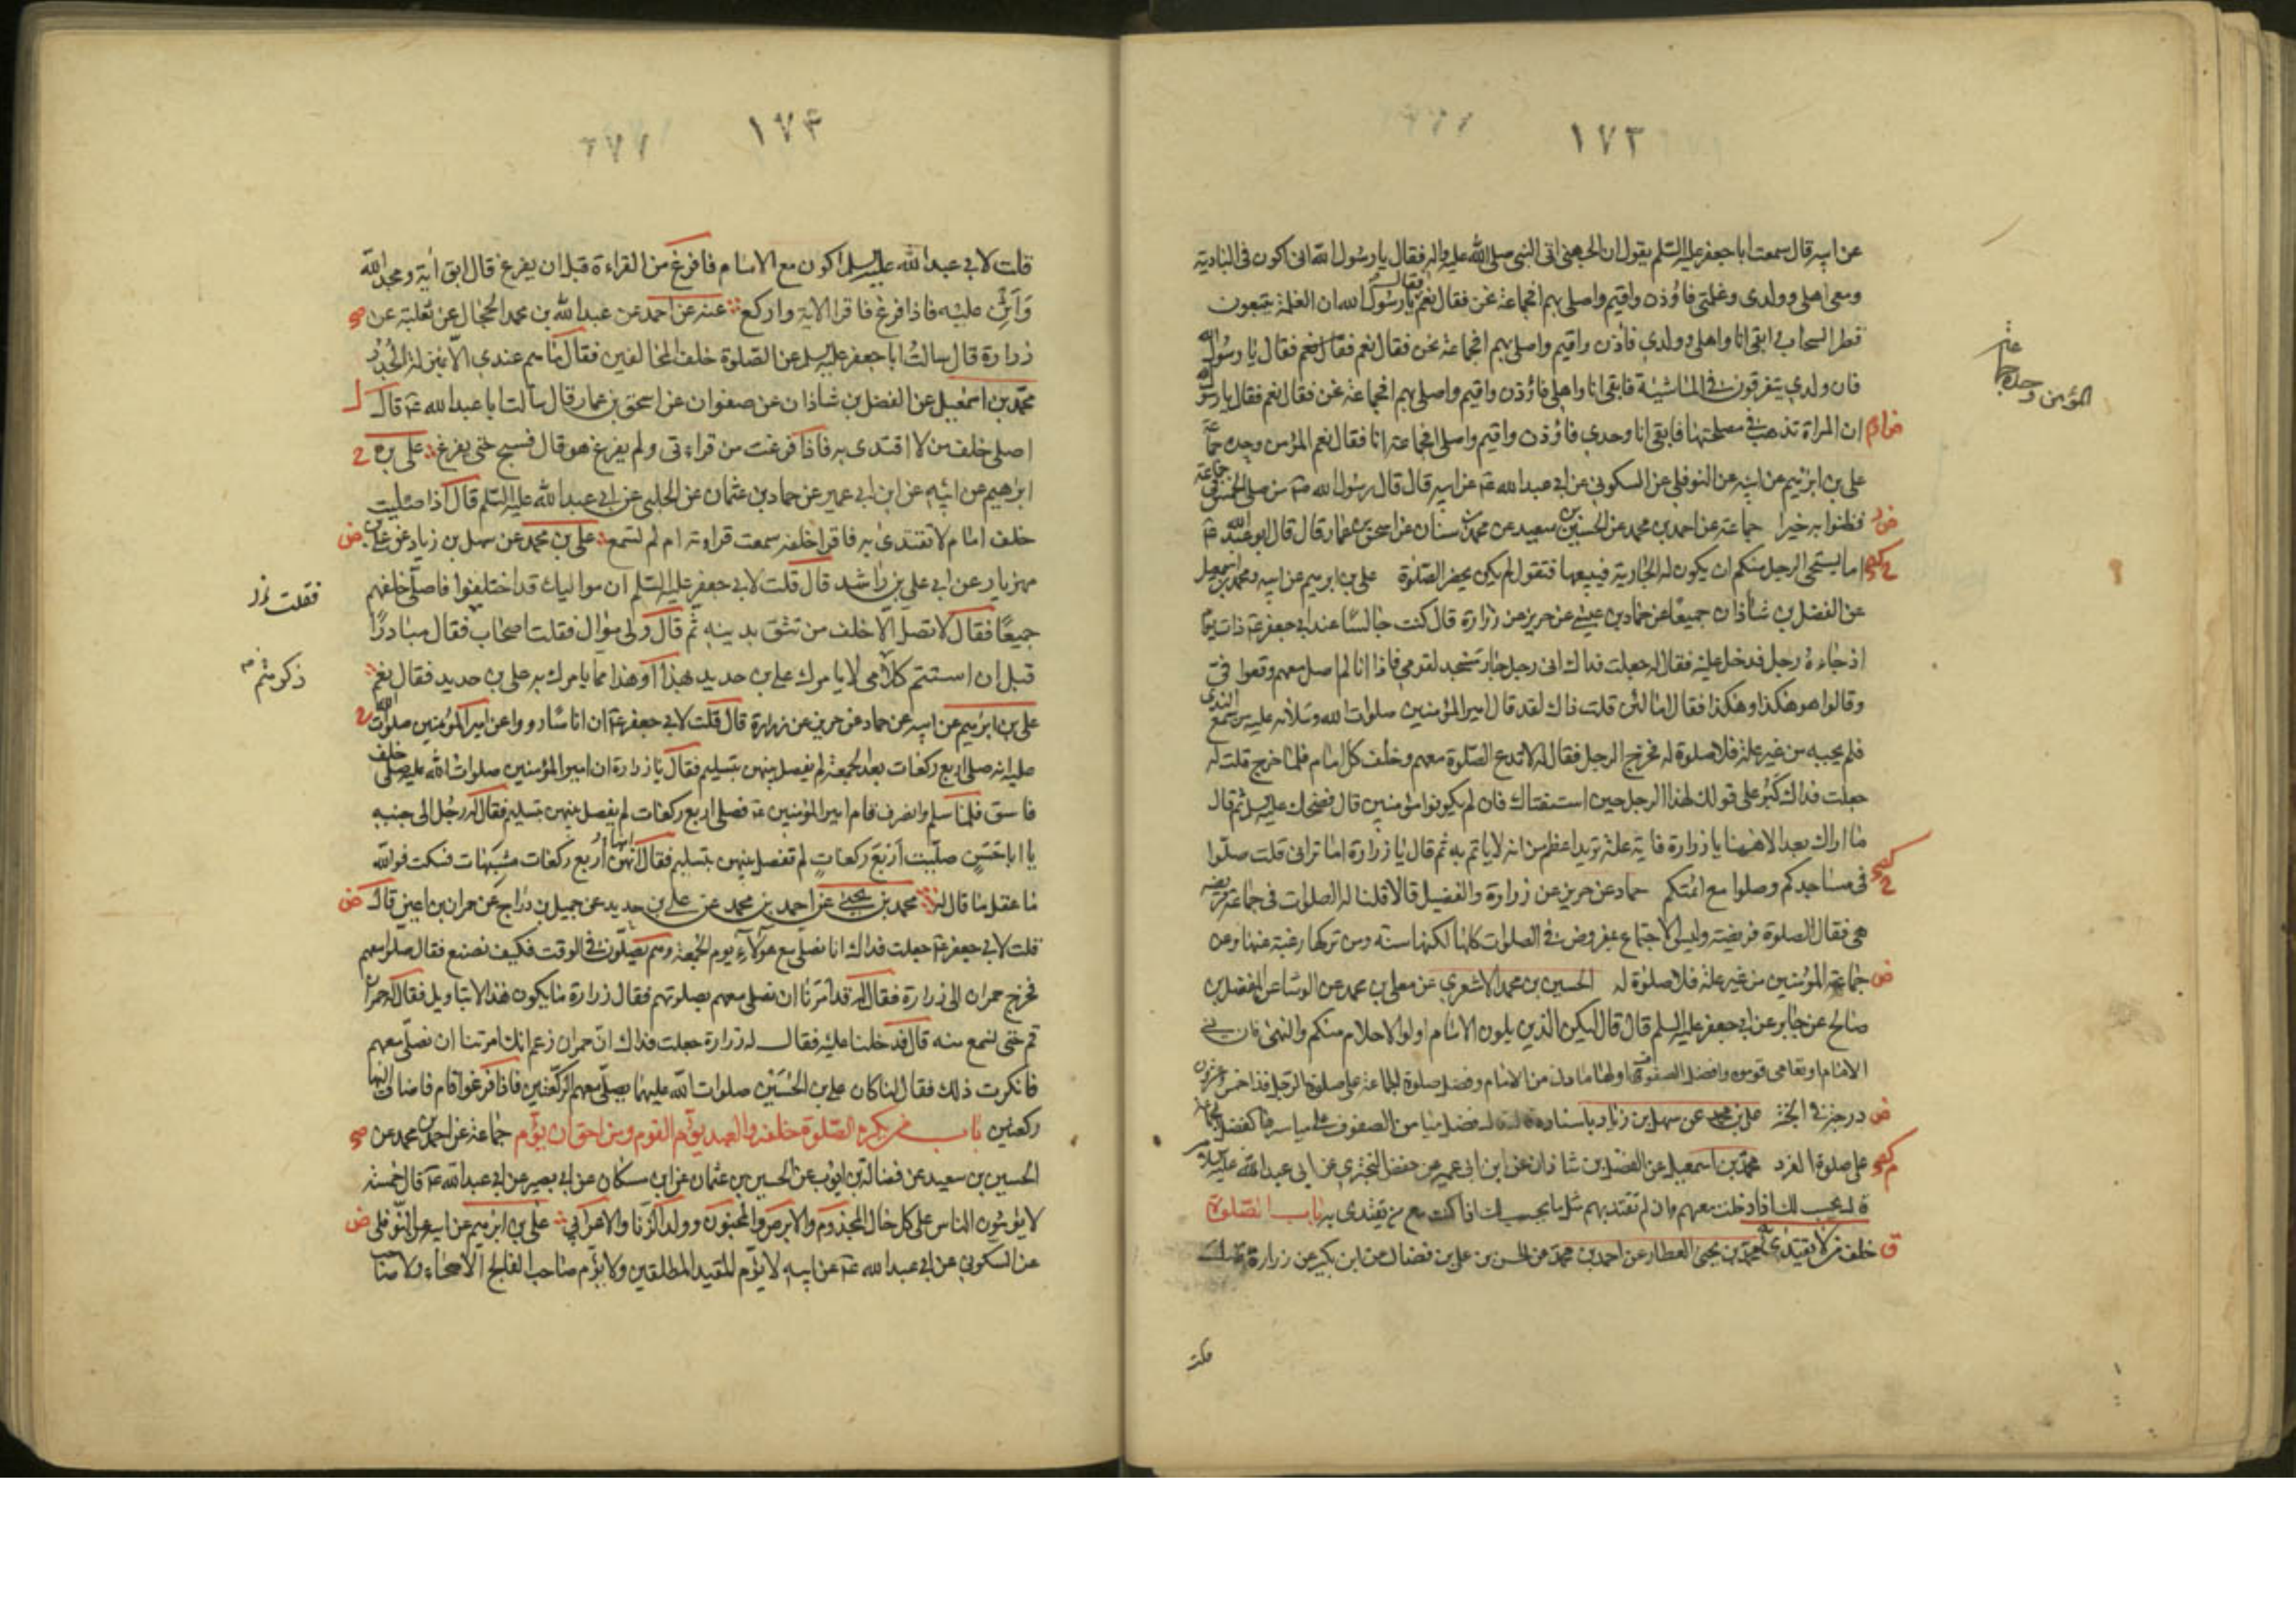 ١٧٣
عن ابيه قال سمعت ابا جعفر عليه السلم يقول ان الجهني اتى النبي صلى الله عليه واله فقال يا رسول الله انى اكون فى البادية
ومعى اهلى وولدى وغلمتى فاؤذن واقيم واصلى بهم افجماعة نحن فقال نعم فقال يا رسول الله ان الغلمة يتبعون
قطر السحاب فابقى انا واهلى وولدى فاؤذن واقيم واصلى بهم افجماعة نحن فقال نعم فقال يا رسول الله
فان ولدى يتفرقون فى الماشية فابقى انا واهلى فاؤذن واقيم واصلى بهم افجماعة نحن فقال نعم فقال يا رسول الله
ان المراة تذهب فى مصلحتها فابقى انا وحدى فاؤذن واقيم واصلى افجماعة انا فقال نعم المؤمن وحده جماعة
المؤمن وحده جماعة
على بن ابرهيم عن ابيه عن النوفلى عن السكونى عن ابى عبدالله عن ابيه قال قال رسول الله من صلى الخمس فى جماعة
فظنوا به خيرا جماعة عن احمد بن محمد عن الحسين بن سعيد عن محمد بن سنان عن اسحق بن عمار قال قال ابو عبد الله
اما يستحى الرجل منكم ان يكون له الجارية فيبيعها فتقول لم يكن يحضر الصلوة على بن ابرهيم عن ابيه ومحمد بن اسمعيل
عن الفضل بن شاذان جميعا عن حماد بن عيسى عن حريز عن زرارة قال كنت جالسا عند ابى جعفر ذات يوم
اذ جاءه رجل فدخل عليه فقال له جعلت فداك انى رجل جار مسجد لقومى فاذا انا لم اصل معهم وقعوا فى
وقالوا هو هكذا وهكذا فقال اما لئن قلت ذاك لقد قال امير المؤمنين صلوات الله وسلامه عليه من سمع النداء
فلم يجبه من غير علة فلا صلوة له فخرج الرجل فقال له لا تدع الصلوة معهم وخلف كل امام فلما خرج قلت له
جعلت فداك كبر على قولك لهذا الرجل حين استفتاك فان لم يكونوا مؤمنين قال فضحك عليه السلم ثم قال
ما اراك بعد الا ههنا يا زرارة فاية علة تريد اعظم من انه لا ياتم به ثم قال يا زرارة اما ترانى قلت صلوا
فى مساجدكم وصلوا مع ائمتكم حماد عن حريز عن زرارة والفضيل قالا قلنا له الصلوات فى جماعة فريضة
هى فقال الصلوة فريضة وليس الاجتماع بمفروض فى الصلوات كلها لكنها سنة ومن تركها رغبة عنها وعن
جماعة المؤمنين من غير علة فلا صلوة له الحسين بن محمد الاشعرى عن معلى بن محمد عن الوشا عن المفضل بن
صالح عن جابر عن ابى جعفر عليه السلم قال قال ليكن الذين يلون الامام اولوا الاحلام منكم والنهى فان نسى
الامام او تعايى قوموه وافضل الصفوف اولها وافضل اولها ما دنى من الامام وفضل صلوة الجماعة على صلوة الرجل فذا خمس وعشرون
درجة فى الجنة على بن محمد عن سهل بن زياد باسناده قال قال فضل ميامن الصفوف على مياسرها كفضل الجماعة
على صلوة الفرد محمد بن اسمعيل عن الفضل بن شاذان عن ابن ابى عمير عن حفص البخترى عن ابى عبد الله عليه السلام
قال يحسب لك اذا دخلت معهم وان لم تقتد بهم مثل ما يحسب لك اذا كنت مع من تقتدى به باب الصلوة
خلف من لا يقتدى به محمد بن يحيى العطار عن احمد بن محمد عن الحسن بن على بن فضال عن ابن بكير عن زرارة قال
قلت
١٧٤
قلت لابى عبدالله عليه السلم اكون مع الامام فافرغ من القراءة قبل ان يفرغ قال ابق اية ومجد الله
وَاَثْنِ عليه فاذا فرغ فاقرا الاية واركع عنه عن احمد عن عبدالله بن محمد الحجال عن ثعلبة عن
زرارة قال سالت ابا جعفر عليه السلم عن الصلوة خلف المخالفين فقال ما هم عندى الا بمنزلة الجُدُر
محمد بن اسمعيل عن الفضل بن شاذان عن صفوان عن اسحق بن عمار قال سالت ابا عبدالله قال
اصلى خلف من لا اقتدى به فاذا فرغت من قراءتى ولم يفرغ هو قال فسبح حتى يفرغ على بن
ابراهيم عن ابيه عن ابن ابى عمير عن حماد بن عثمان عن الحلبى عن ابى عبدالله عليه السلم قال اذا صليت
خلف امام لا تقتدى به فاقرا خلفه سمعت قراءته ام لم تسمع على بن محمد عن سهل بن زياد عن على بن
مهزيار عن ابى على بن راشد قال قلت لابى جعفر عليه السلم ان مواليك قد اختلفوا فاصلى خلفهم
جميعا فقال لا تصل الا خلف من تثق بدينه ثم قال ولى موال فقلت اصحاب فقال مبادرا
قبل ان استتم كلامى لا يامرك على بن حديد بهذا او هذا مما يامرك به على بن حديد فقال نعم
على بن ابرهيم عن ابيه عن حماد عن حريز عن زرارة قال قلت لابى جعفر ان اناسا رووا عن امير المؤمنين صلوات الله
عليه انه صلى اربع ركعات بعد الجمعة لم يفصل بينهن بتسليم فقال يا زرارة ان امير المؤمنين صلوات الله عليه صلى خلف
فاسق فلما سلم وانصرف قام امير المؤمنين فصلى اربع ركعات لم يفصل بينهن بتسليم فقال له رجل الى جنبه
يا ابا حسن صليت اربع ركعات لم تفصل بينهن بتسليم فقال انها اربع ركعات مشبهات فسكت فوالله
ما عقل ما قال له محمد بن يحيى عن احمد بن محمد عن على بن حديد عن جميل بن دراج عن حمران بن اعين قال
قلت لابى جعفر جعلت فداك انا نصلى مع هؤلاء يوم الجمعة وهم يصلون فى الوقت فكيف نصنع فقال صلوا معهم
فخرج حمران الى زرارة فقال له قد امرنا ان نصلى معهم بصلوتهم فقال زرارة ما يكون هذا الا بتاويل فقال له حمران
قم حتى نسمع منه قال فدخلنا عليه فقال له زرارة جعلت فداك ان حمران زعم انك امرتنا ان نصلى معهم
فانكرت ذلك فقال لنا كان على بن الحسين صلوات الله عليهما يصلى معهم الركعتين فاذا فرغوا قام فاضاف اليها
ركعتين باب من يكره الصلوة خلفه والعبد يؤم القوم ومن احق ان يؤم جماعة عن احمد بن محمد عن
الحسين بن سعيد عن فضالة بن ايوب عن الحسين بن عثمان عن ابن مسكان عن ابى بصير عن ابى عبدالله قال خمسة
لا يؤمون الناس على كل حال المجذوم والابرص والمجنون وولد الزنا والاعرابى على بن ابرهيم عن ابيه عن النوفلى
عن السكونى عن ابى عبدالله عن ابيه لا يؤم المقيد المطلقين ولا يؤم صاحب الفالج الاصحاء ولا صاحب